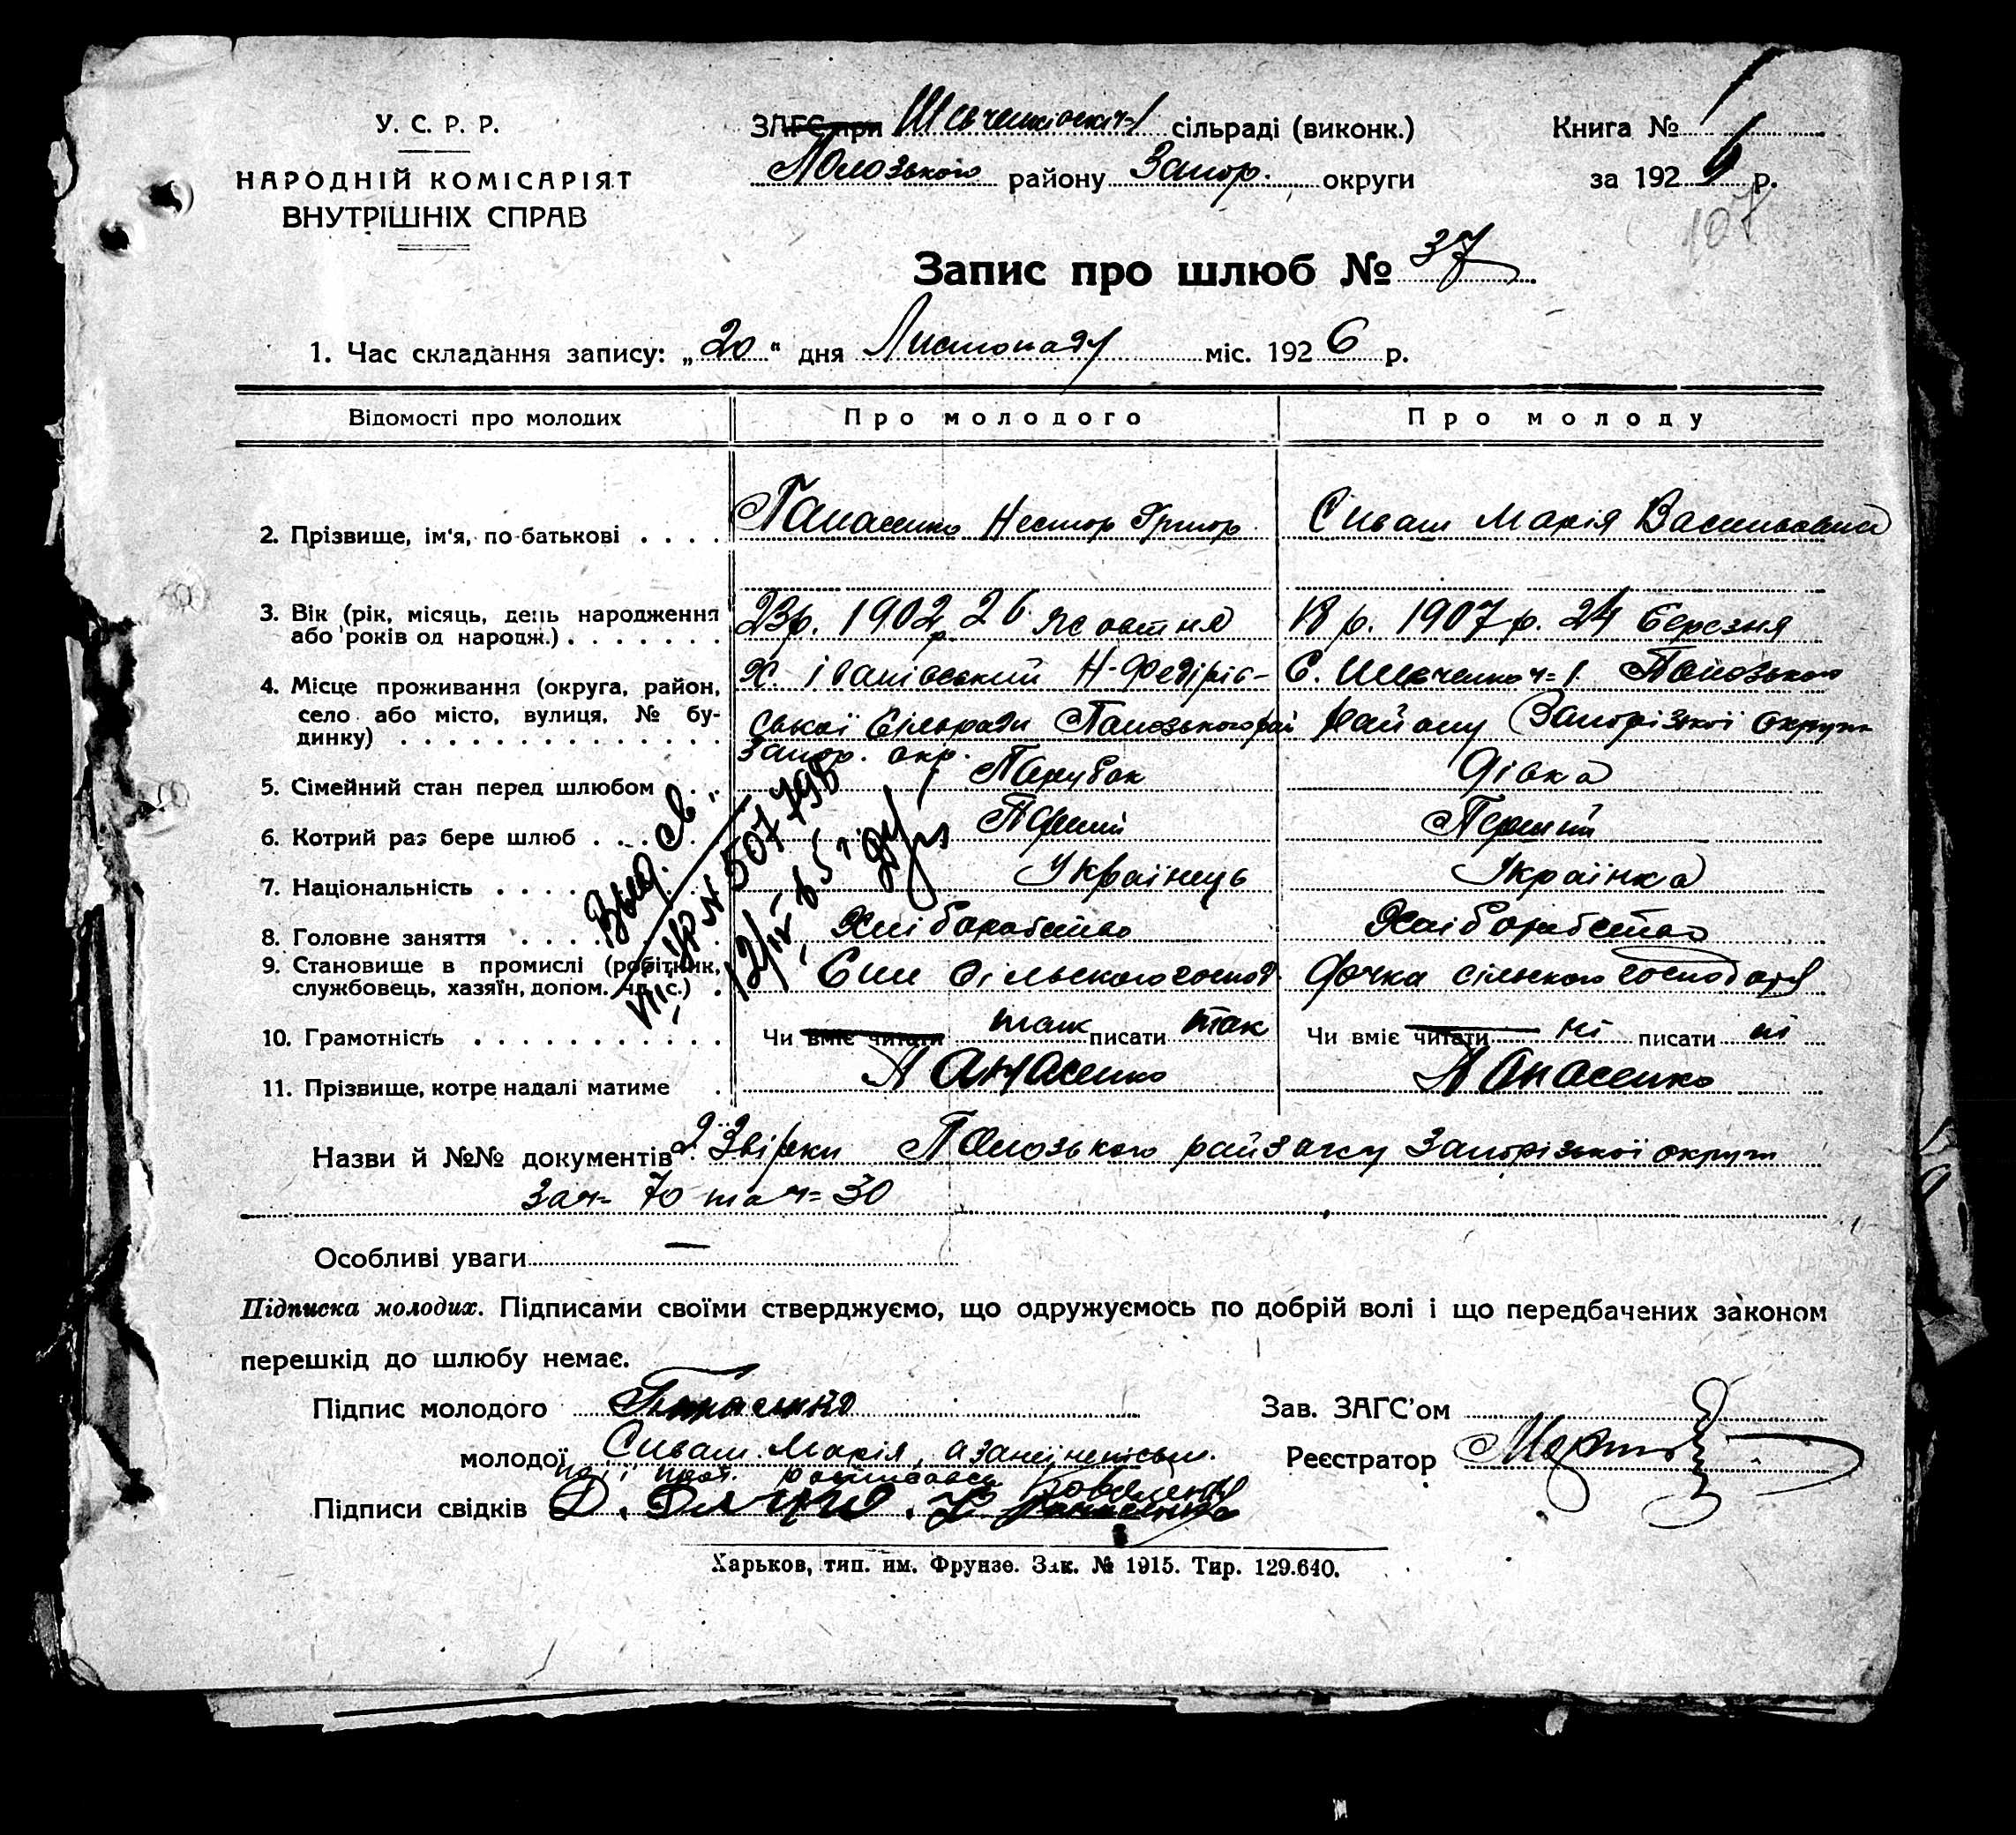 У. С. Р. Р.
НАРОДНІЙ КОМІСАРІЯТ
ВНУТРІШНІХ СПРАВ
ЗАГС при Шевченківській ч-1 сільраді (виконк.)
Пологзького району Запор. округи
Книга № 1
за 1926 р.
107
Запис про шлюб № 37
1. Час складання запису: „20“ дня Листопаду міс. 1926 р.
Відомості про молодих Про молодого Про молоду
2. Прізвище, ім'я, по-батькові . . . . Панасенко Нестор Григор. Сиваш Марія Васильовна
3. Вік (рік, місяць, день народження 23 р. 1902 р. 26 жовтня 18 р. 1907 р. 24 березня
або років од народж.) . . . . . . .
4. Місце проживання (округа, район, Х. Іванівський Н-Федірів- С. Шевченко ч=1. Пологзького
село або місто, вулиця, № бу- ської Сільради Пологзького рай району Запорізької округи
динку) . . . . . . . . . . . . . . Запор. окр.
5. Сімейний стан перед шлюбом . . . Парубок дівка
6. Котрий раз бере шлюб . . . . Перший Перший
7. Національність . . . . . Українець Українка
8. Головне заняття . . . . Хліборобство Хліборобство
9. Становище в промислі (робітник, Син сільського господ. Дочка сільского господаря
службовець, хазяїн, допом. чл. с.) .
10. Грамотність . . . . . . . . . . . Чи вміє читати так писати так Чи вміє читати ні писати ні
11. Прізвище, котре надалі матиме . Панасенко Панасенко
Выд. св.
VII-УР N 507798
12/IV-65 г.
Назви й №№ документів 2 Звірки Пологзького райзагсу Запорізької округи
за ч= 70 та ч= 30
Особливі уваги —
Підписка молодих. Підписами своїми стверджуємо, що одружуємось по добрій волі і що передбачених законом
перешкід до шлюбу немає.
Підпис молодого Панасенко Зав. ЗАГС'ом
молодої Сиваш Марія, а за неї неписьм. Реєстратор
Підписи свідків
Харьков, тип. им. Фрунзе. Зак. № 1915. Тир. 129.640.